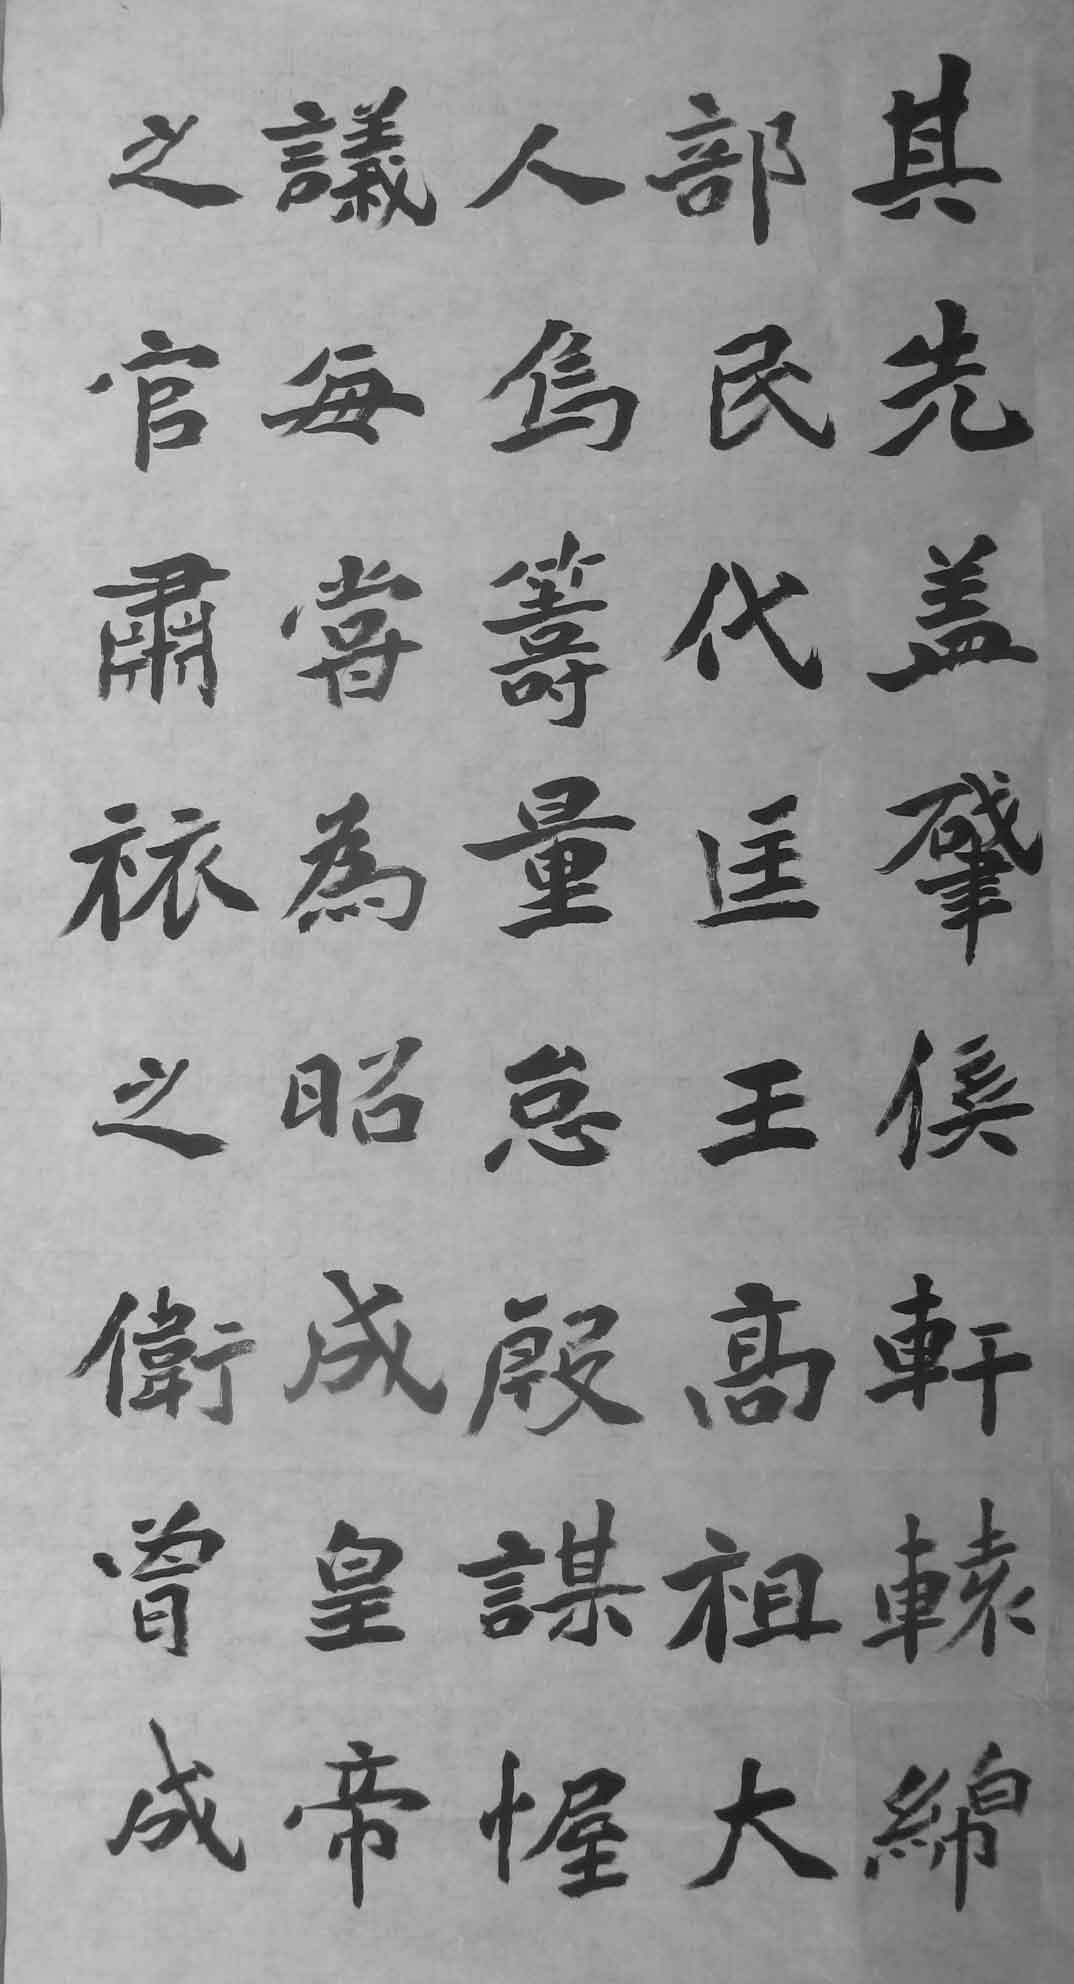 其先盖肇傒軒轅綿
部民代匡王高祖大
人爲籌量怠殿謀幄
議每嘗為昭成皇帝
之官肅之衛曾成